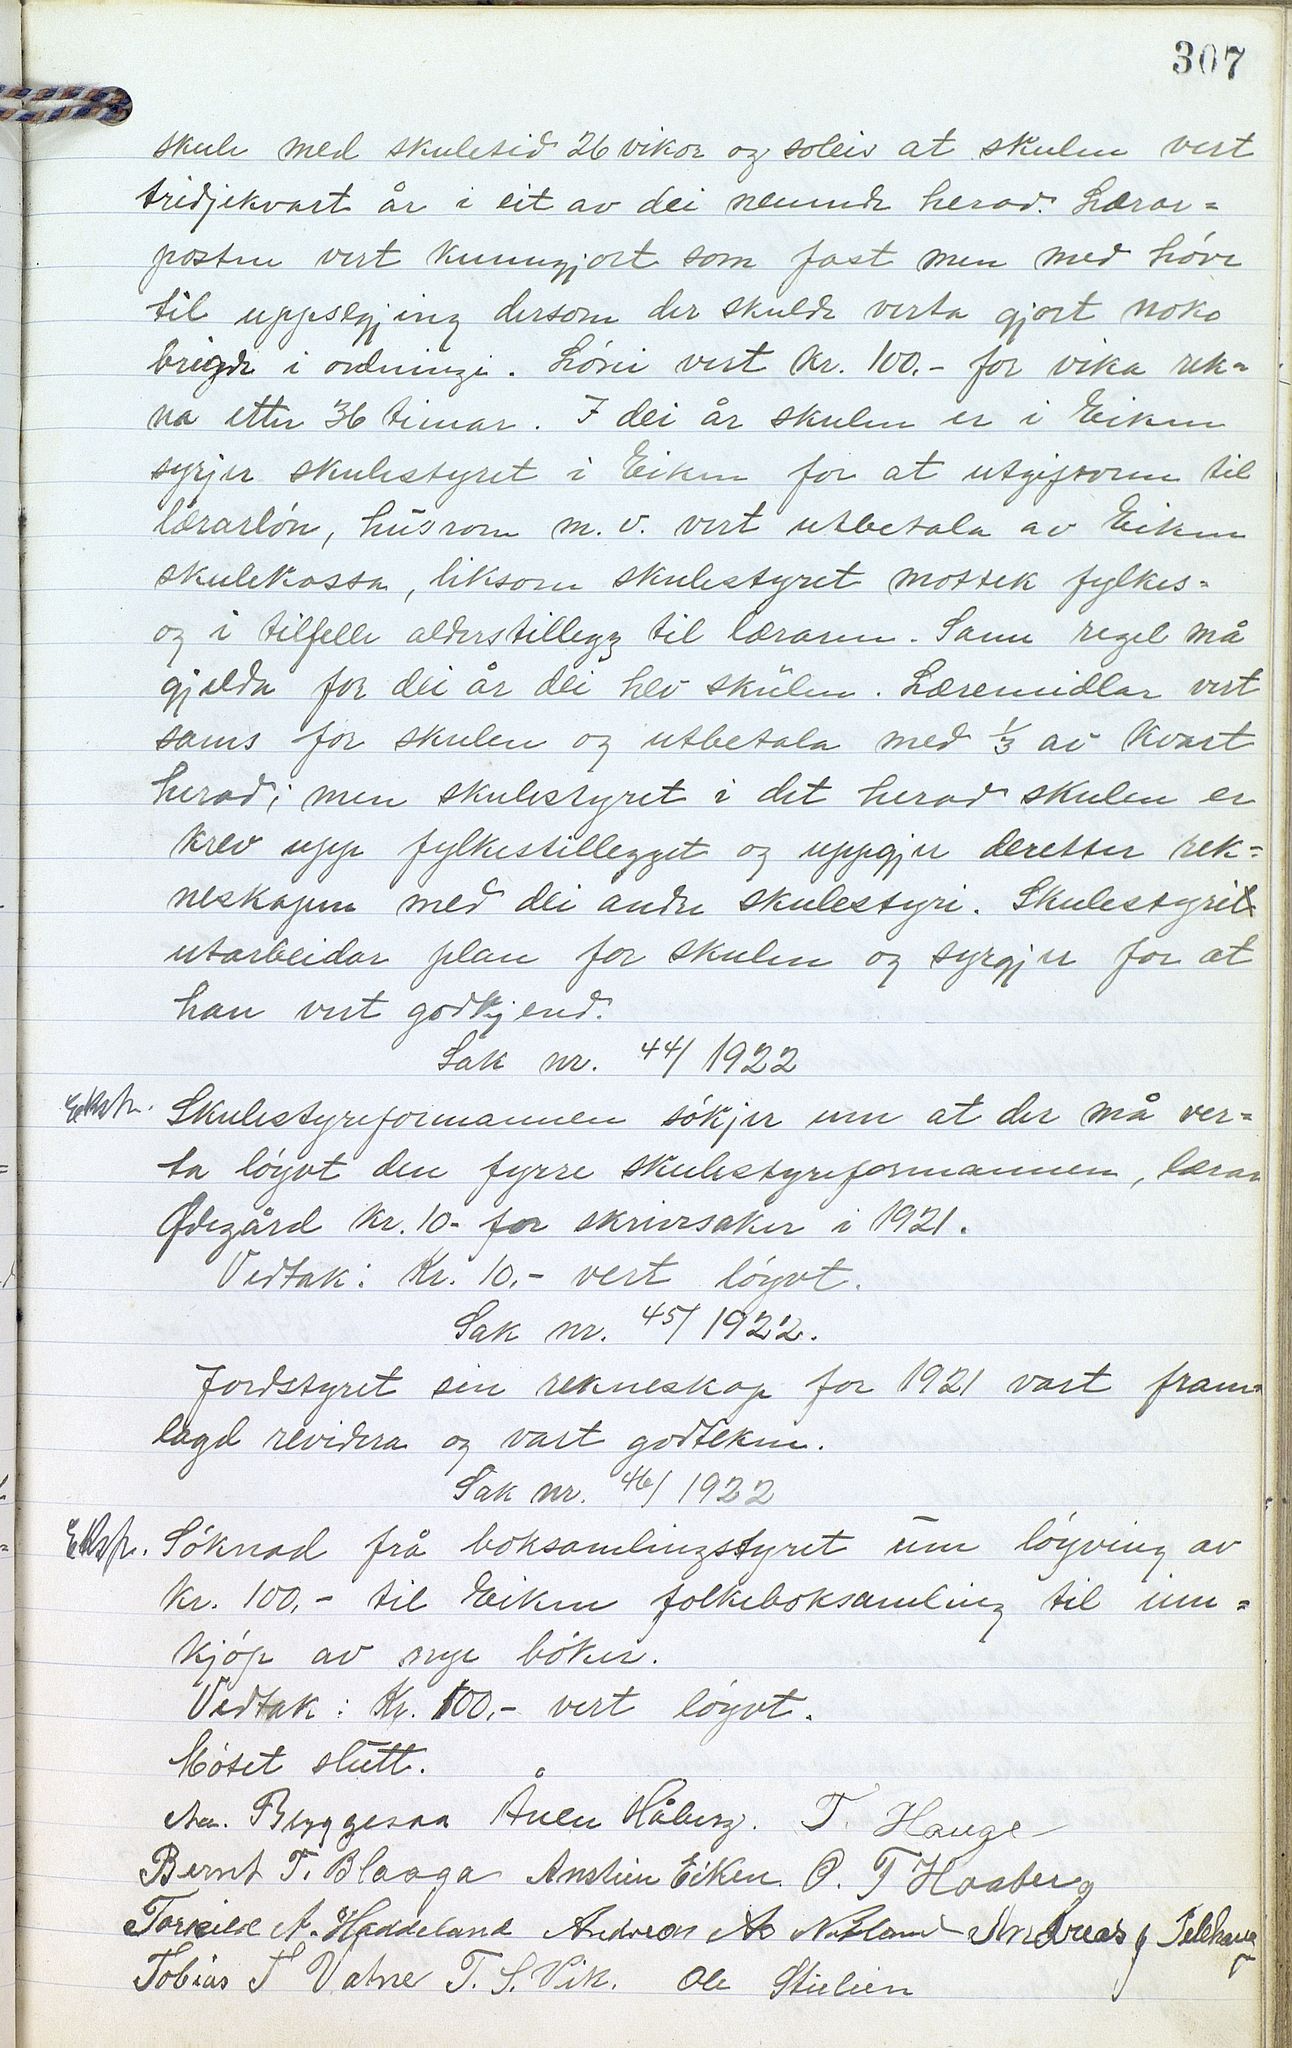 307
skule med skuletid 26 vikor og soleis at skulen vert
tridjekvart år i eit av dei nemnde herad. Lærar=
posten vert kunngjort som fast men med høve
til uppsegjing dersom der skulde verta gjort noko
brigde i ordningi. Løni vert kr. 100.- for vika rek=
na etter 36 timar. I dei år skulen er i Eiken
syrjer skulestyret i Eiken for at utgiftorne til
lærarløn, husrom m. v. vert utbetala av Eiken
skulekassa, liksom skulestyret mottek fylkes=
og i tilfelle alderstillegg til læraren. Same regel må
gjelda for dei år dei hev skulen. Læremidlar vert
sams for skulen og utbetala med 1/3 av kvart
herad; men skulestyret i det herad skulen er
krev upp fylkestillegget og uppgjer deretter rek=
neskapen med dei andre skulestyri. Skulestyri
utarbeidar plan for skulen og syrgjer for at
han vert godkjend.
Sak nr. 44/1922
Ekspr. Skulestyreformannen søkjer um at der må ver=
ta løyvt den fyrre skulestyreformannen, lærar
Ødegård kr. 10.- for skrivesaker i 1921.
Vedtak: Kr. 10,- vert løyvt.
Sak nr. 45/1922.
Jordstyret sin rekneskap for 1921 vart fram=
lagd revidera og vart godteken.
Sak nr. 46/1922
Ekspr. Søknad frå boksamlingstyret um løyving av
kr. 100,- til Eiken folkeboksamling til inn=
kjøp av nye bøker.
Vedtak: Kr. 100,- vert løyvt.
Møtet slutt.
Aa. Bryggesaa Ånen Håberg. T. Hauge
Bernt T. Blaaga Anstein Eiken. O. T Haaberg
Torkild A. Haddeland Andreas Aa Nesland Andreas J Telhaug
Tobias T Vatne T. S. Vik. Ole Stulien